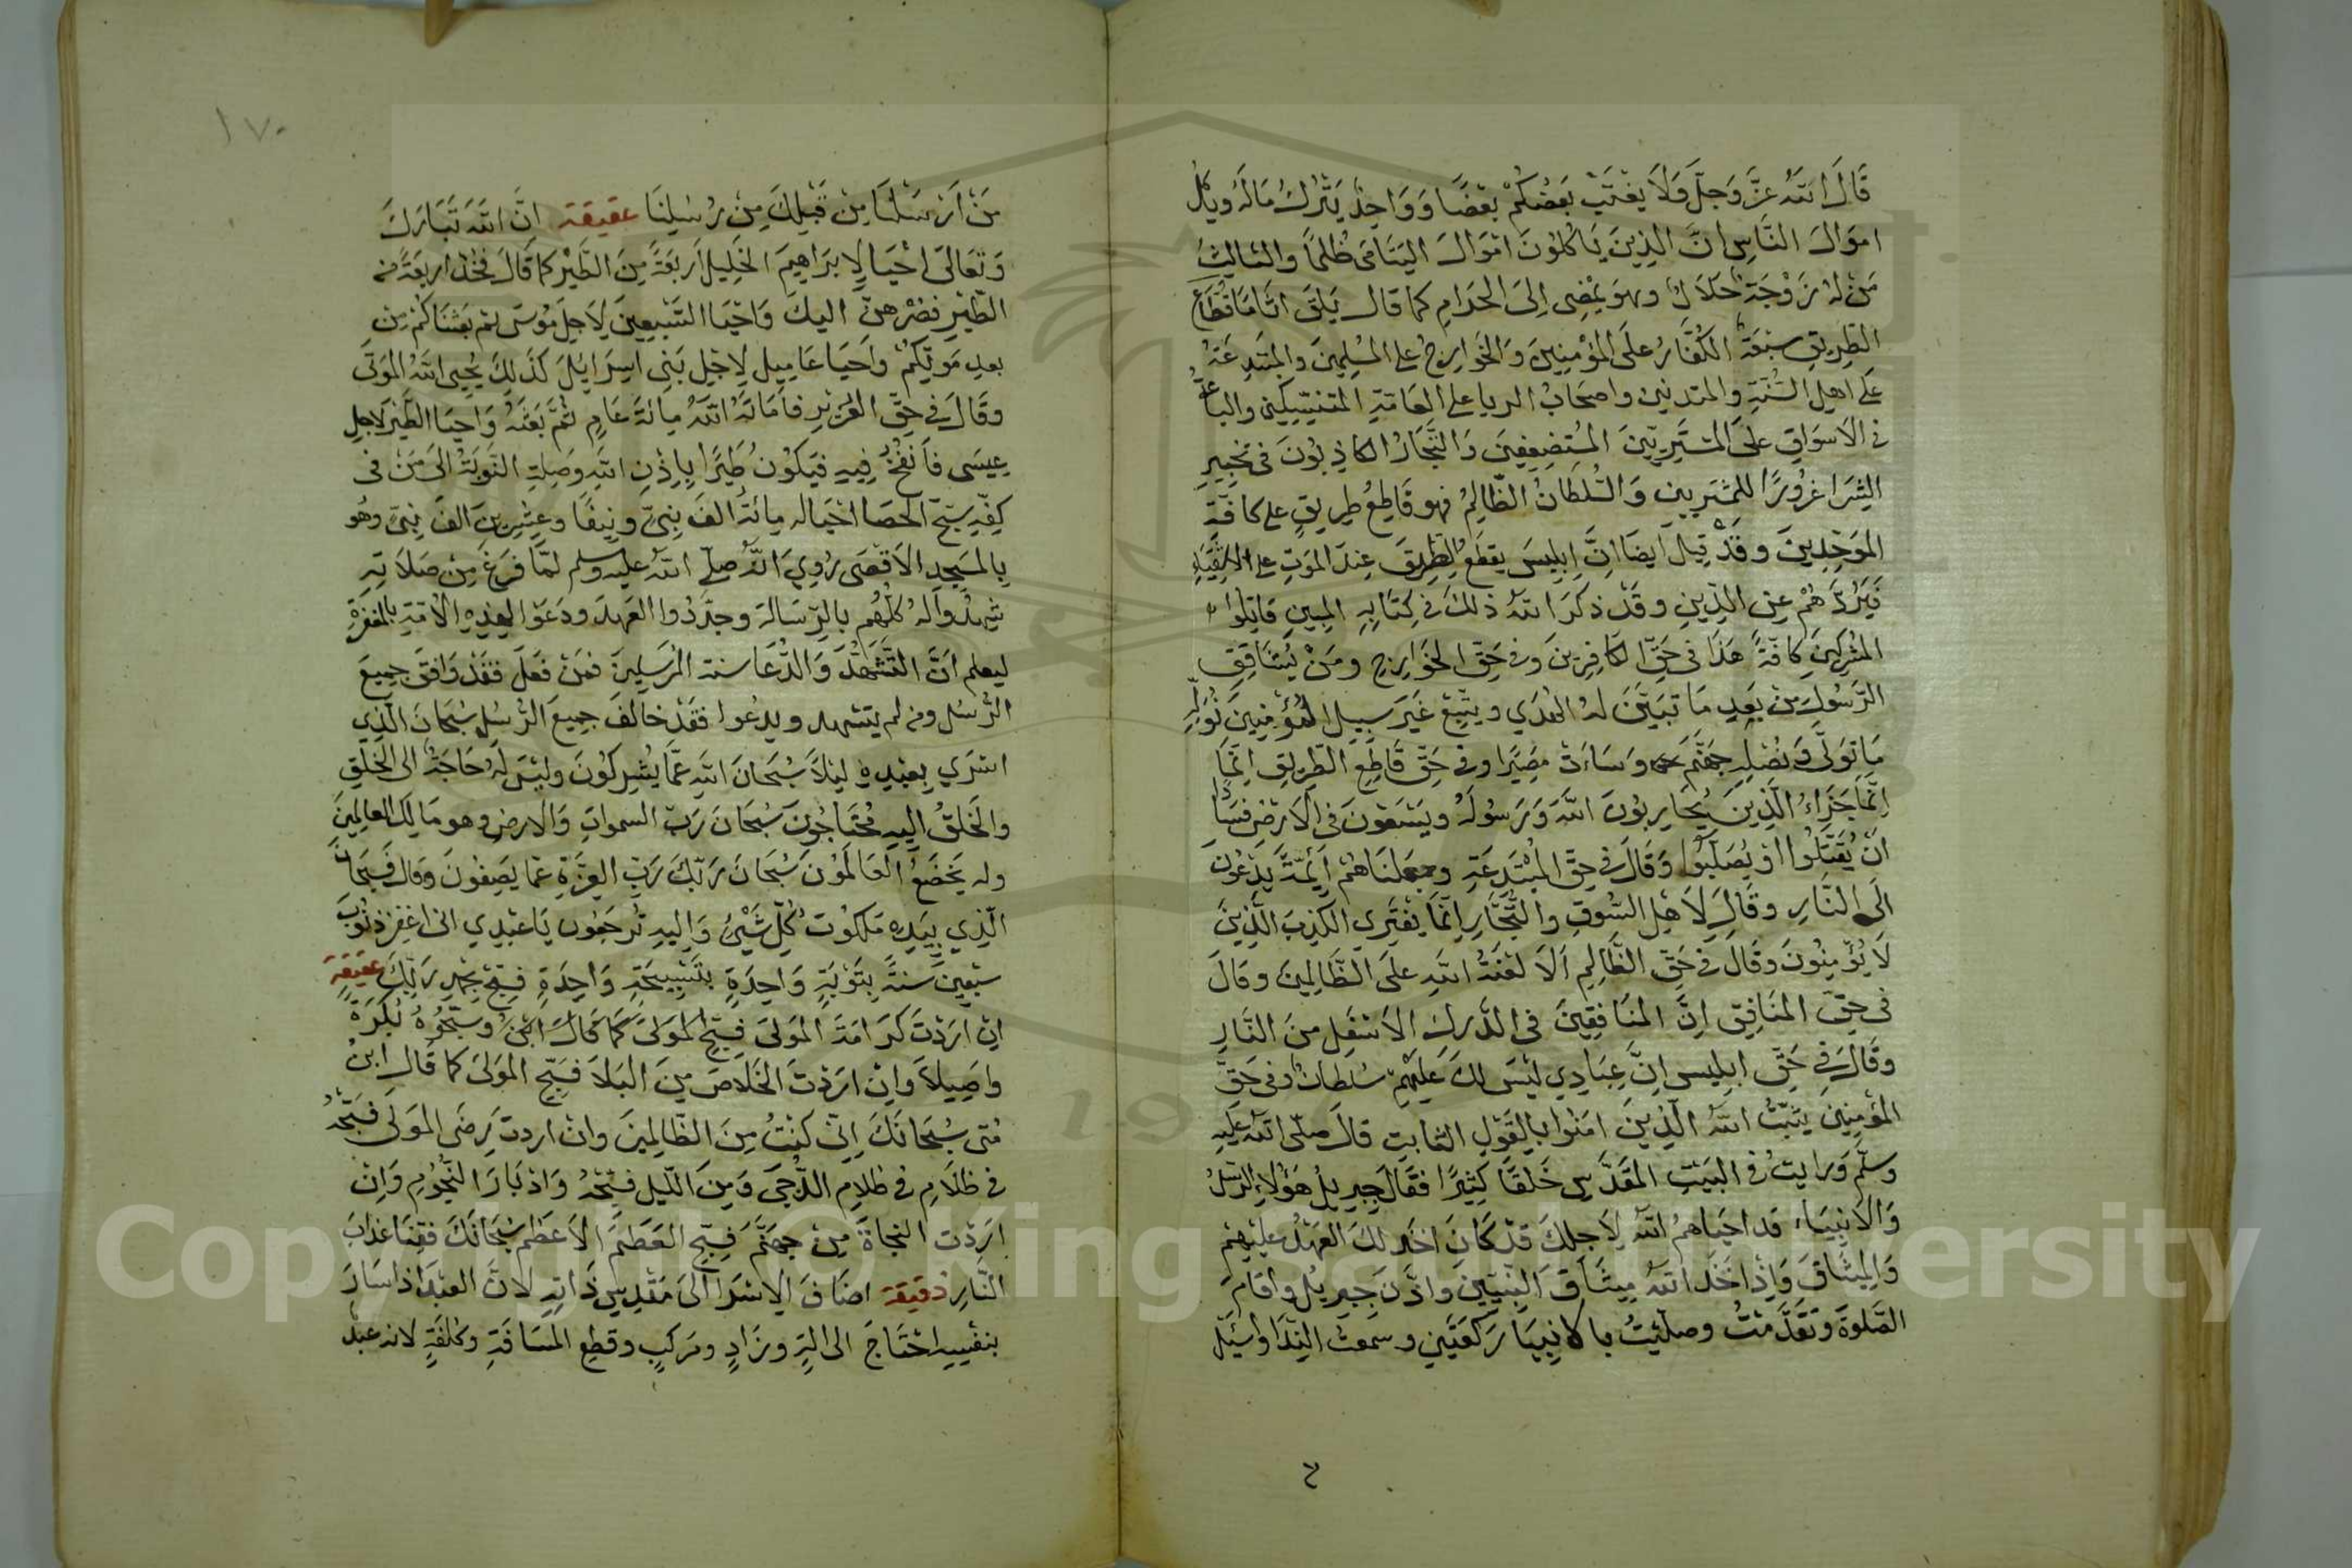 قَالَ اللّٰهُ عَزَّ وَجَلَّ وَلَا يَغْتَبْ بَعْضُكُمْ بَعْضًا وَوَاحِدٌ يَتْرُكُ مَالَهُ وَيٲكل
اموَالَ النَّاسِ انَّ الذِينَ يَاكُلوُنَ اَمْوَالَ اليَتَامَى ظُلمًا والثالِث
مَنْ لهُ زَوْجَةٌ حَلَالٌ وهوَ يَمْضِى اِلىَ الحَرَامِ كما قال يَلقَ اثَامًا قُطَّاع
الطَّرِيقِ سبْعَةٌ الكُفَّارُ علَى المؤمِنِينَ وَالخَوارِجُ على المسْلِمينَ والمبتَدِعَةُ
عَلى اهلِ السُّنَّةِ والمتدنين واصحَابُ الريا على العَامّةِ المتنسِّكين والباعَةُ
فى الاَسوَاقِ علىَ المشتَرِيِينَ المُستَضعِفِينَ وَالتُّجَّارُ الكاذِبُونَ فى تخبِيرِ
الشِرَا غرُورًا للمشترِيين وَالسُّلطَانُ الظَّالِمُ فهو قَاطِعُ طرِيقٍ على كافّة
الموَحِّدِينَ وقَدْ قِيلَ اَيضًا انَّ اِبلِيسَ يقطَعُ الطَّرِيقَ عِندَ الموتِ على الاشقِيَاءِ
فَيَرُدُّهُمْ عن الدِّينِ وقَدْ ذكَرَ اللّٰهُ ذلكَ فى كِتَابهِ المبينِ قاتِلوُا
المشْرِكِينَ كافّةً هَذَا فى حَقِّ الكَافِرِينَ وفى حَقِّ الخوَارِجِ ومَنْ يُشَاقِقِ
الرَّسُولَ مِنْ بَعْدِ مَا تبَيَّنَ لهُ الهُدَي ويتَّبِعْ غَيرَ سبِيلِ المُؤمِنِينَ نُوَلِّهِ
مَا توَلَّى وَنصْلِهِ جهَنَّمَ وسَاءَتْ مصِيرًا وفى حَقِّ قَاطِعِ الطَّرِيقِ انّمَا
اِنَّمَا جَزَاءُ الَّذِينَ يُحَارِبوُنَ اللّٰهَ وَرَسُولَهُ ويَسْعَوْنَ فى الاَرْضِ فسَادًا
انْ يُقَتَّلُوا اوْ يُصَلَّبُوا وَقَالَ فى حَقِّ المُبْتَدِعَةِ وجعَلنَاهُمْ اَئِمَّةً يَدْعُونَ
الَى النَّارِ وقَالَ لِاَهْلِ السُّوقِ والتُّجَّارِ اِنَّمَا يَفْتَرِي الكَذِبَ الَّذِينَ
لَا يُؤمِنُونَ وقَالَ فى حَقِّ الظَّالِمِ اَلَا لعْنَةُ اللّٰهِ علىَ الظَّالِمِينَ وقالَ
فى حقِّ المنَافِقِ اِنَّ المنَافِقِينَ فى الدَّركِ الاَسْفَلِ منَ النَّارِ
وقَالَ فى حَقِّ ابلِيس اِنَّ عِبَادِي ليْسَ لكَ عَليْهِمْ سُلطَانٌ وفى حَقِّ
المؤمِنِينَ يثَبِّتُ اللّٰهُ الَّذِينَ امَنُوا بالقَوْلِ الثابِتِ قالَ صلّى اللّٰهُ عليهِ
وسلّم وَرايتُ فى البَيْتِ المقَدَّسِ خَلقًا كثِيرًا فقَالَ جِبرِيلُ هَؤُلاءِ الرُّسُلُ
وَالانبِيَاءُ قد احيَاهمُ اللّٰهُ لِاَجلِكَ قدْ كَانَ اخَذ لكَ العَهْدُ عليْهِمْ
وَالمِيثَاقَ وَاِذْ اَخَذَ اللّٰهُ مِيثَاقَ النبِيّينَ واذَّنَ جِبرِيلُ واقامَ
الصَّلوةَ وتقَدَّمْتُ وصلّيْتُ بالانبِيَا رَكعَتَينِ وسمعتُ النِّدَا واسْئَلْ
مَنْ اَرْسَلْنَا مِنْ قَبْلِكَ مِنْ رُسُلِنَا عقيقة انَّ اللّٰهَ تَبَارَكَ
وَتعَالىَ احْيَا لِابرَاهِيمَ الخَلِيل اَربَعَةً مِنَ الطَّيْرِ كما قَالَ فخُذ اربعَةً من
الطّيْرِ فصُرْهنَّ اليكَ وَاحْيَا السَّبْعِينَ لِاَجلِ موُسَى ثم بعَثنَاكُمْ مِن
بعدِ مَوتِكُمْ واَحيَا عَامِيل لِاجْلِ بَنِى اسرَايُلَ كذَلِكَ يُحيِى اللّٰهُ الموْتَى
وقَالَ فى حَقِّ العُزيْرِ فاَمَاتَهُ اللّٰهُ مِائَةَ عَامٍ ثمَّ بَعَثَهُ وَاحيَا الطَّيْرَ لاجلِ
عِيسَى فاَنْفخُ فِيهِ فيَكوُنُ طَيْرًا بِاِذْنِ اللّٰهِ وصَلتِ النَّوبَةُ الىَ مَنْ فى
كفِّهِ سبَّحَ الحَصَا اَحْيَا له مِائةُ الفَ نبِىٍّ ونيفًا وعِشرِينَ الفَ نبِىٍّ وهُو
بِالمَسْجِدِ الاَقْصَى رُوِيَ انَّهُ صلى اللّٰهُ عليه وسلم لمَّا فَرغَ مِنْ صَلَاتِهِ
شهِدُوا لهُ كُلُّهُم بالرِّسَالةِ وجدَّدُوا العَهدَ ودَعَوْا لهذِهِ الاُمّةِ بالمغفِرَةِ
ليعلم اَنَّ التَّشَهُّدَ وَالدُّعَا سنة المُرْسَلِينَ فمَنْ فعَلَ فقَدْ وَافَقَ جمِيعَ
الرُّسُل ومن لم يتَشهد ويدعُوا فقَدْ خالَفَ جمِيعَ الرُّسُلِ سُبحَانَ الَّذِي
اسْرَي بِعَبْدِهِ ليْلًا سُبْحَانَ اللّٰهِ عَمَّا يُشْرِكُونَ وليْسَ لَهُ حَاجَةٌ الى الخَلقِ
والخَلقُ اليهِ مُحْتَاجُونَ سُبْحَانَ رَبِّ السمواتِ وَالارضِ وهو مَالِك العالمِينَ
وله يَخضَعُ العَالَمُونَ سُبْحَانَ رَبّكَ رَبِّ العِزَّةِ عَما يَصِفُونَ وقال فَسبحَانَ
الّذِي بِيَدِهِ مَلكوُتُ كُلِّ شَيْئٍ وَاِليهِ تُرجَعُون يَا عَبْدِي انى اغفِرُ ذنُوبَ
سَبْعِينَ سَنةً بِتَوْبَةٍ وَاحِدَةٍ بتَسْبِيحَةٍ وَاحِدَةٍ فسَبِّحْ بحَمْدِ رَبِّكَ عقيقة
اِنْ ارَدْتَ كرَامَةَ الموَلىَ فسَبِّحِ الموَلىَ كمَا قالَ وسَبِّحُوهُ بُكرَةً
واصِيلًا وانْ ارَدْتَ الخَلَاصَ مِنَ البَلَا فَسَبِّحِ الموَلىَ كما قَالَ ابنُ
مَتى سُبحَانكَ اِنِّى كُنْتُ مِنَ الظَّالِمِينَ وانْ اردت رِضَى الموَلَى فسَبّحْهُ
فى ظلَامِ فى ظلامِ الدُّجَى وَمِنَ اللّيل فسَبّحْهُ وَاِدْبَارَ النُّجُومِ وَاِنْ
ارَدْتَ النجاةَ مِنْ جهَنَّمَ فسَبِّحِ العَظِيمَ الاَعظمِ سُبْحَانكَ فقِنَا عَذابَ
النَّارِ دقيقة اضَافَ الاِسْرَا الىَ مَقْدِسِ ذَاتِهِ لانَّ العبْدَ اذا سَارَ
بنفْسِهِ احْتَاجَ الى الةٍ وزَادٍ ومَركبٍ وقطِعِ المسَافَةِ وكلفَةٍ لانه عبدٌ
١٧٠
Copyright © King Saud University